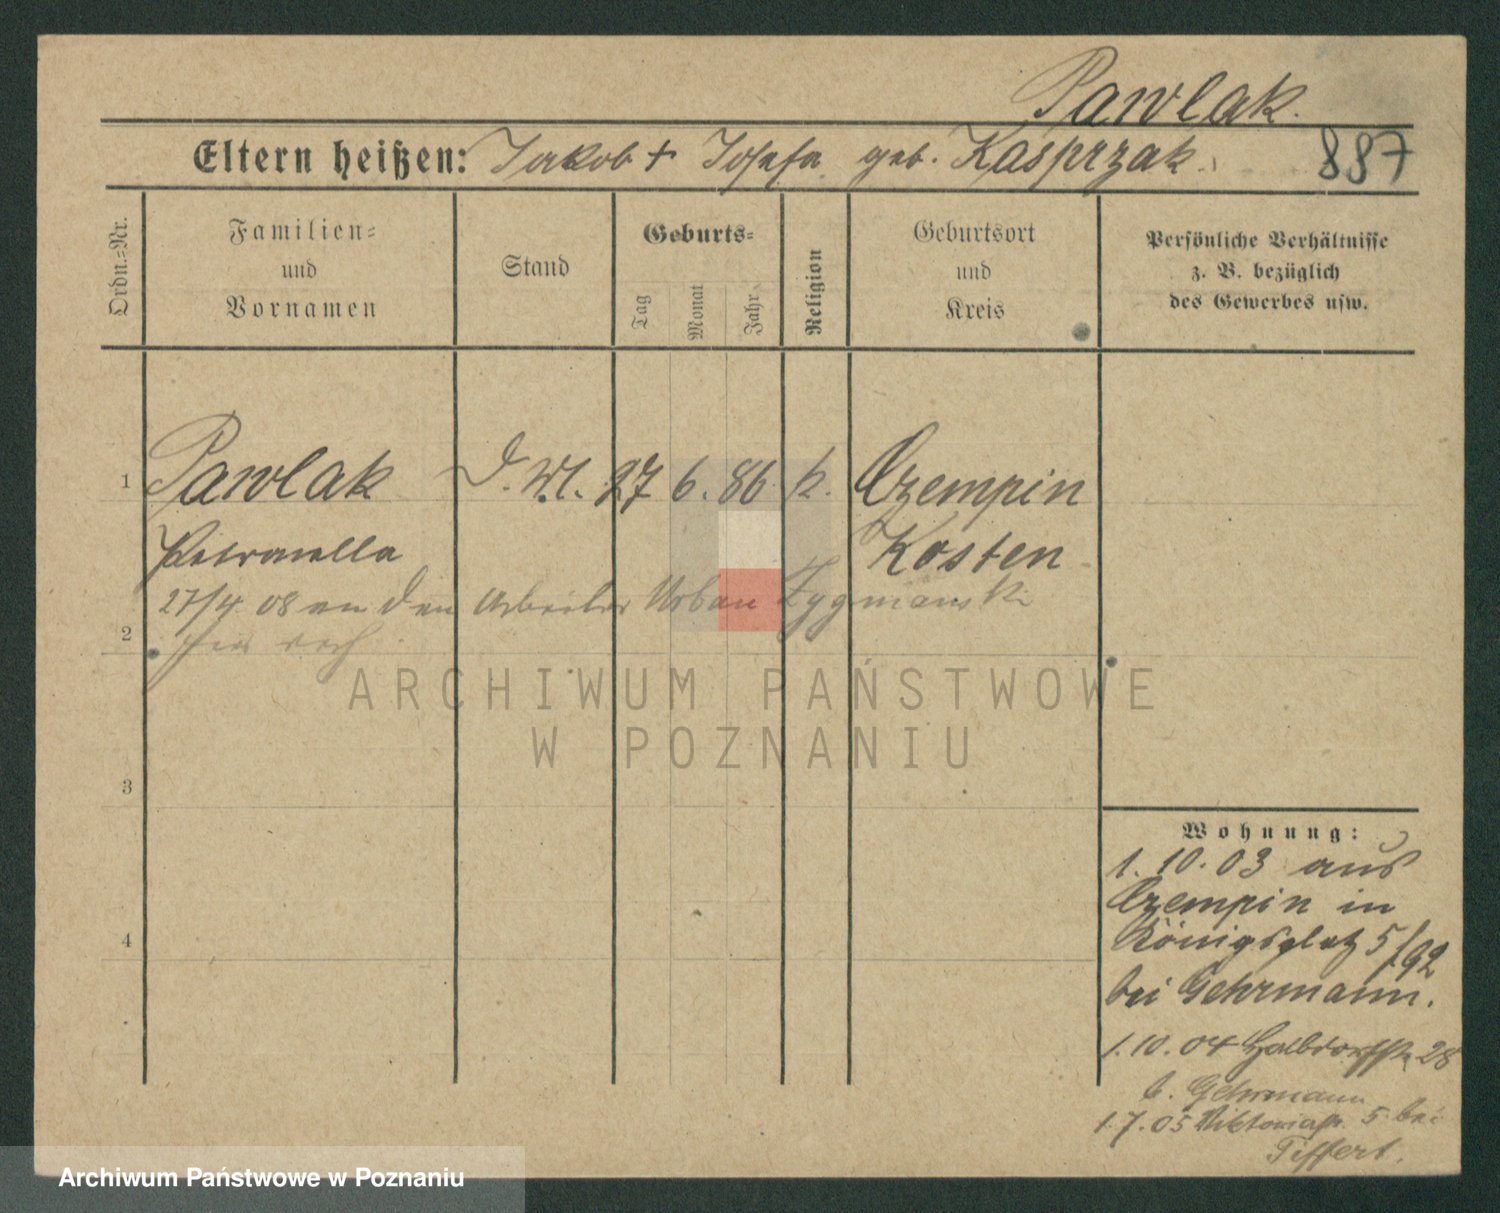 Pawlak.
Eltern heißen: Jakob + Josefa geb. Kasprzak.
887
Ordn.-Nr.
Familien- und Vornamen
Stand
Geburts-
Tag
Monat
Jahr
Religion
Geburtsort und Kreis
Persönliche Verhältnisse
z. B. bezüglich
des Gewerbes usw.
1
Pawlak D. M. 27 6. 86 k. Czempin
Petronella Kosten
27/4 08 an den Arbeiter Urban Zygmanski
2
3
4
Wohnung:
1. 10. 03 aus
Czempin in
Königsplatz 5
bei Gehrmann.
1. 10. 04 Halbdorfstr. 28
b. Gehrmann
1. 7. 05 Viktoriastr. 5 bei
Tiffert.
ARCHIWUM PAŃSTWOWE
W POZNANIU
Archiwum Państwowe w Poznaniu